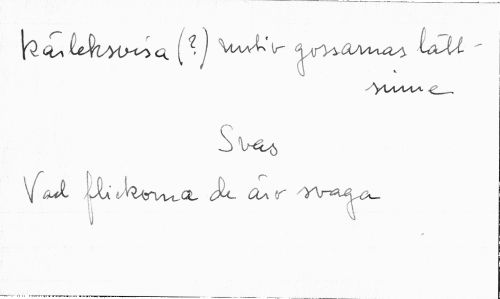 kärleksvisa (?) motiv gossarnas lätt-
sinne
Svag
Vad flickorna de äro svaga